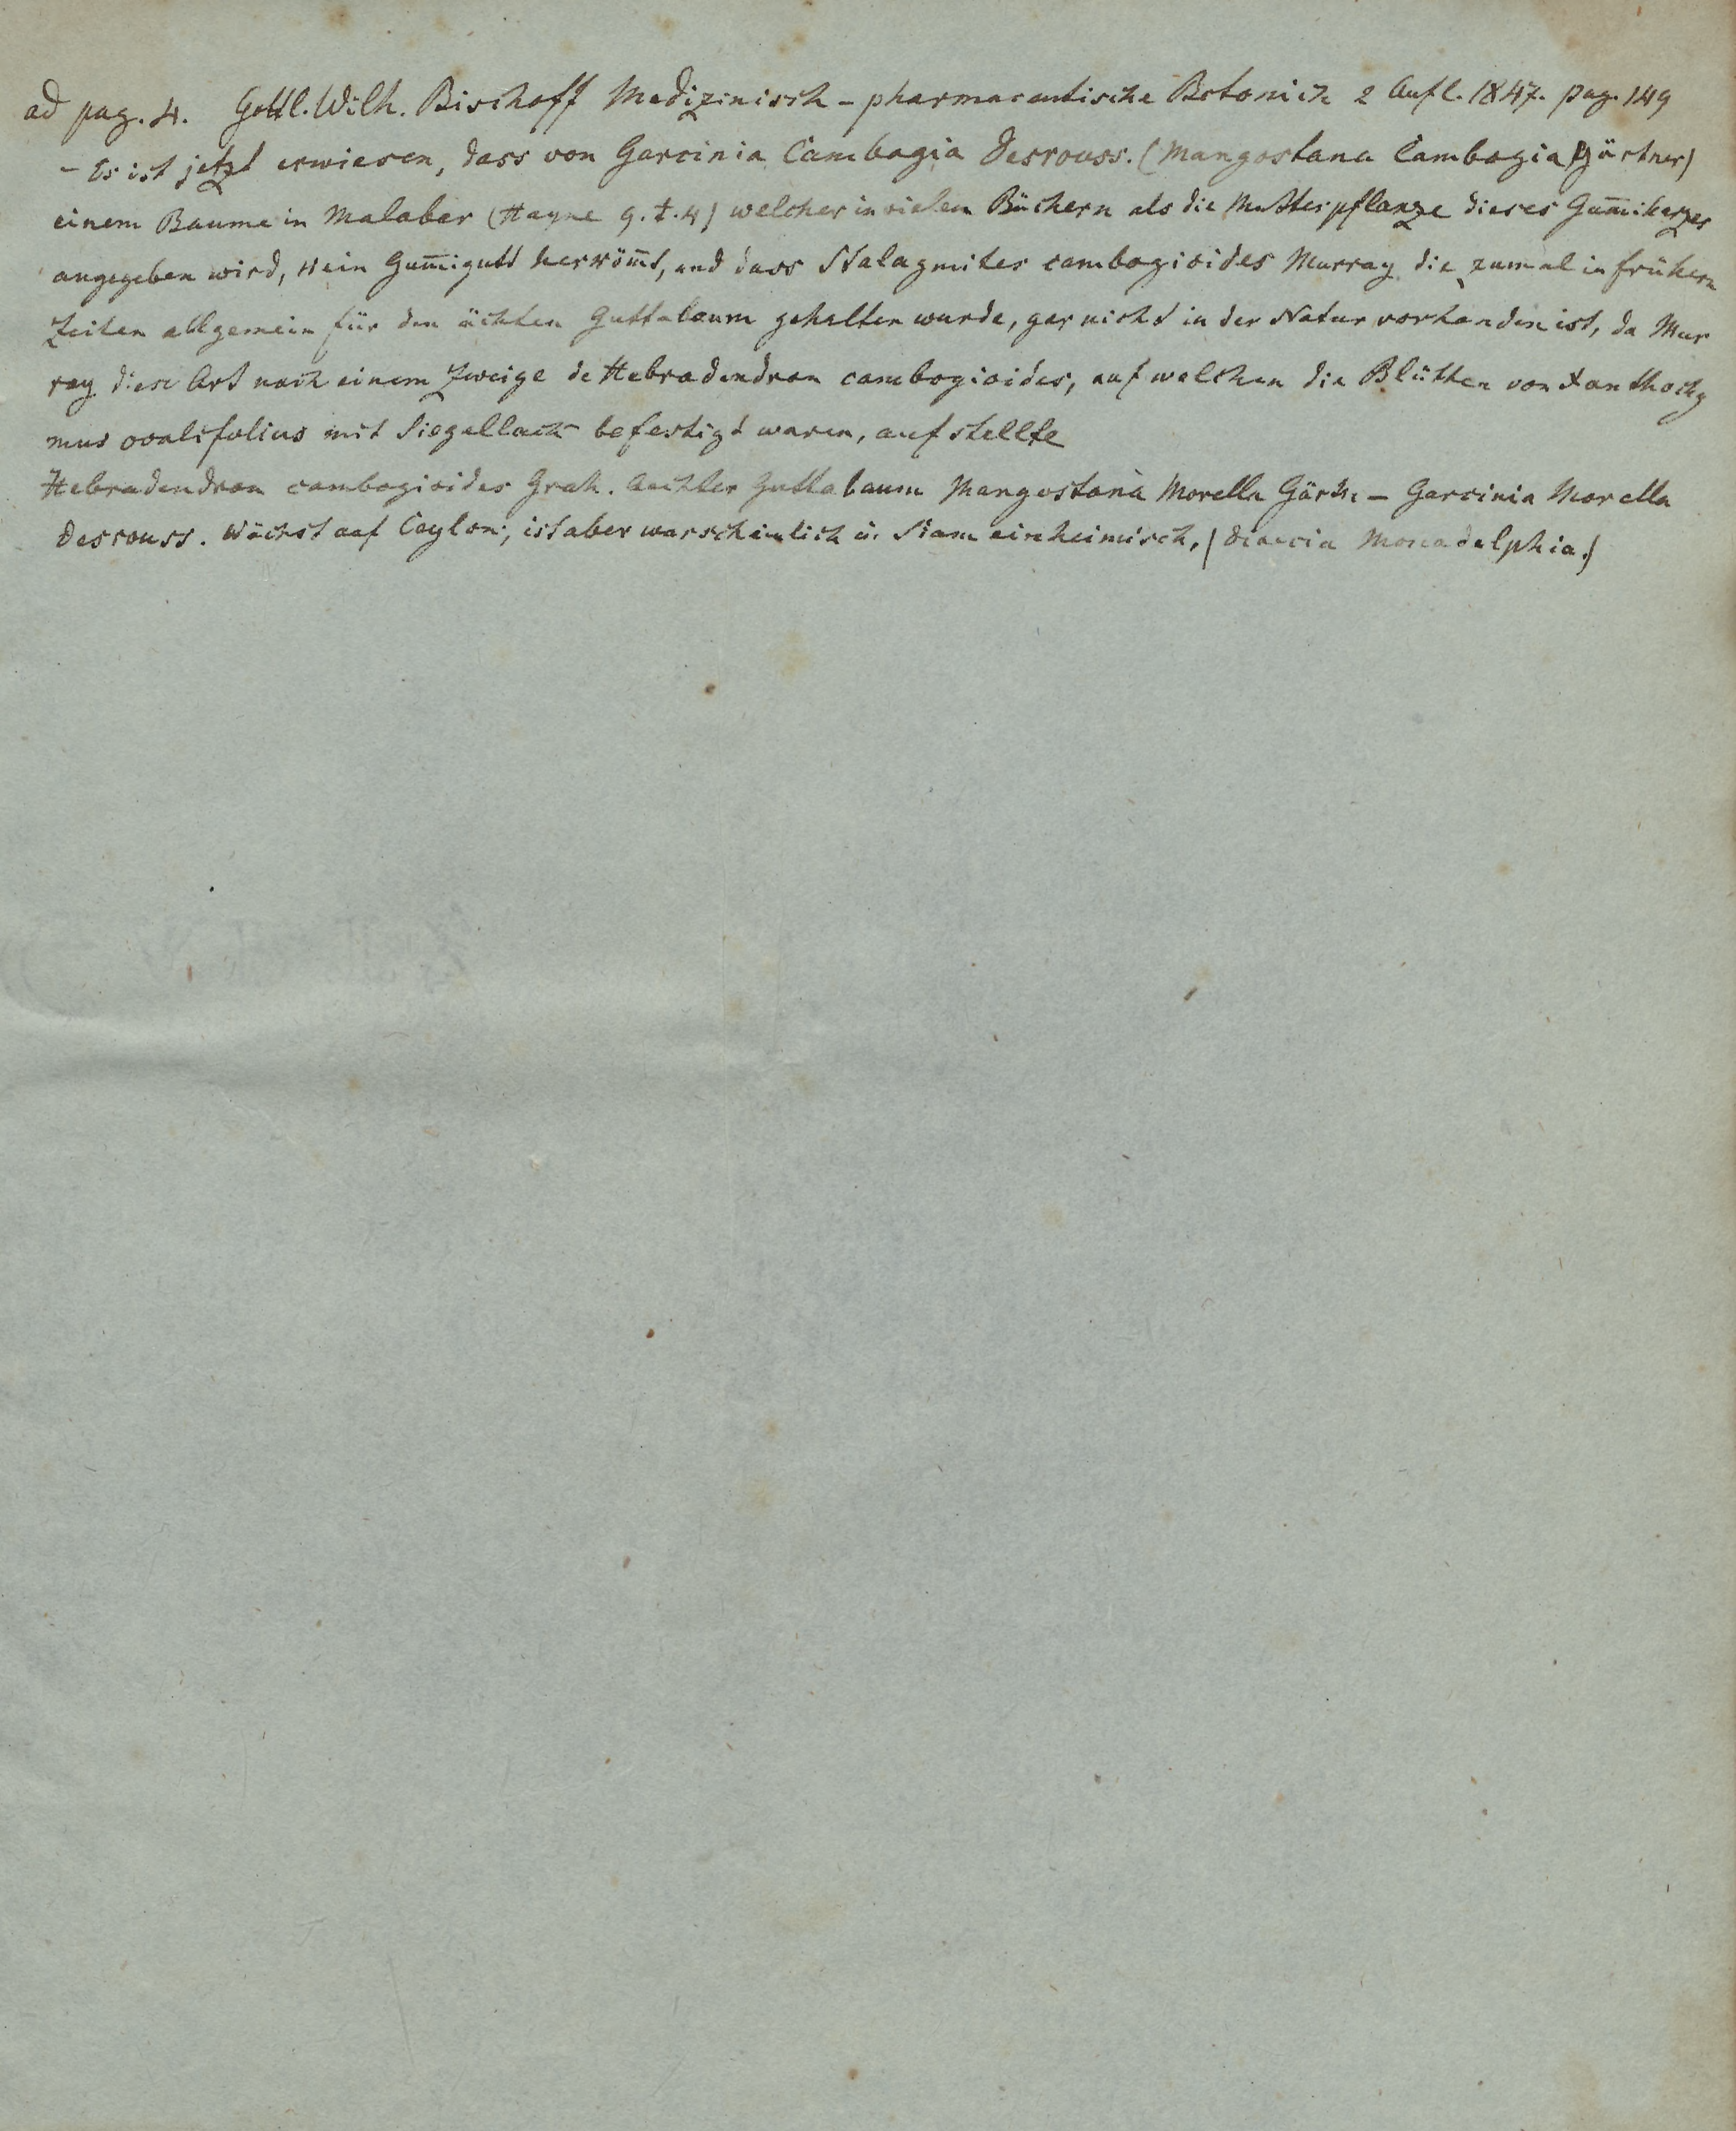 ad pag. 4. Gottl. Wilh. Bischoff Medizinisch - pharmaceutische Botanick 2 Aufl. 1847. pag. 149
- Es ist jetzt erwiesen, dass von Garcinia Cambogia Desrouss. (Mangostana Cambogia Gärtner)
einem Baume in Malabar (Hayne 9. t. 4) welcher in vielen Büchern als die Mutterpflanze dieses Gum̄iharzes
angegeben wird, kein Gum̄igutt herköm̄t, und dass Stalagmites cambogioides Murray die zumal in frühern
Zeiten allgemein für den ächten Guttabaum gehalten wurde, gar nicht in der Natur vorhanden ist, da Mur
ray diese Art nach einem Zweige de Hebradendron cambogioides, auf welchen die Blüthen von Xanthochy
mus ovalifolius mit Siegellack befestigt waren, aufstellte
Hebradendron cambogioides Grah. Aechter Guttabaum Mangostana Morella Gärtn - Garcinia Morella
Desrouss. Wächst auf Ceylon; ist aber warscheinlich in Siam einheimisch. (Dioecia Monadelphia.)